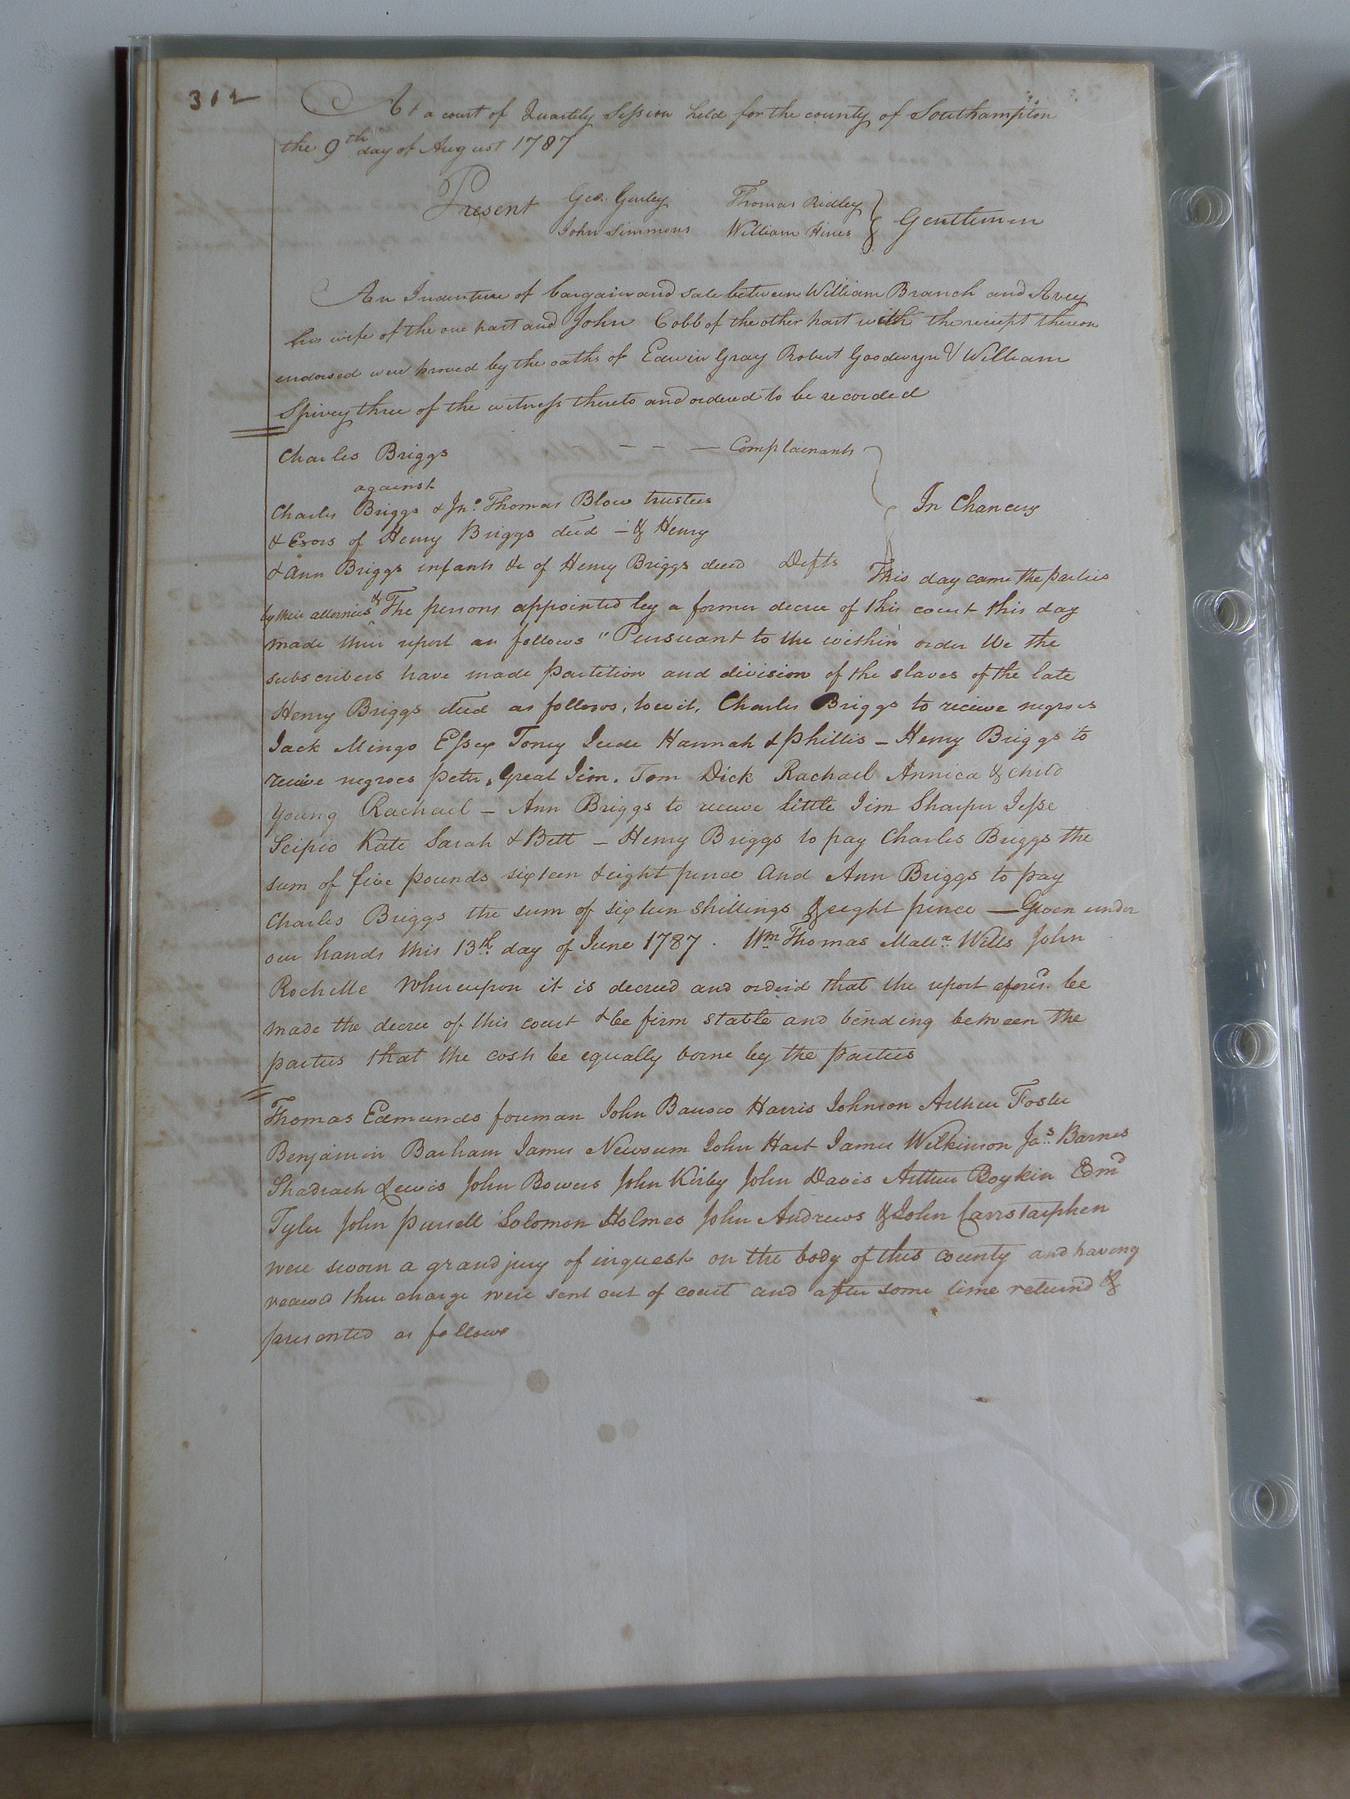 312
At a court of Quartely Session held for the county of Southampton
the 9th day of August 1787
Present Geo. Gurley Thomas Ridley
John Simmons William Hines } Gentlemen
An Indenture of bargain and sale between William Branch and Avey
his wife of the one part and John Cobb of the other part with the receipt thereon
endorsed were proved by the oaths of Edwin Gray Robert Goodwyn & William
Spivey three of the witness thereto and ordered to be recorded
Charles Briggs - - - Complainants
against
Charles Briggs & Jno. Thomas Blow trustees
& Exors of Henry Briggs decd - & Henry
& Ann Briggs infants &c of Henry Briggs decd Defts
In Chancery
This day came the parties
by their attornies & The persons appointed by a former decree of this court this day
made their report as follows "Pursuant to the within order We the
subscribers have made partition and division of the slaves of the late
Henry Briggs decd as follows, towit, Charles Briggs to receive negroes
Jack Mingo Essex Toney Jude Hannah & Phillis - Henry Briggs to
receive negroes Peter, Great Jim. Tom Dick Rachael Annica & child
young Rachael - Ann Briggs to receive little Jim Sharper Jesse
Scipio Kate Sarah & Bett - Henry Briggs to pay Charles Briggs the
sum of five pounds sixteen & eight pence And Ann Briggs to pay
Charles Briggs the sum of sixteen shillings & eight pence — Given under
our hands this 13th. day of June 1787. Wm Thomas Wills John
Rochelle Whereupon it is decreed and orderd that the report aforesd. be
made the decree of this court & be firm stable and binding between the
parties that the costs be equally borne by the parties
Thomas Edmunds foreman John Harris Johnson Arthur Foster
Benjamin Barham James Newsum John Hart James Wilkinson Jas. Barnes
Shadrach Lewis John Bowers John Kirby John Davis Arthur Boykin Edmd
Tyler John Pursell Solomon Holmes John Andrews & John Carrstarphen
were sworn a grand jury of inquest on the body of this county and having
receivd their charge were sent out of court and after some time returnd &
presented as follows